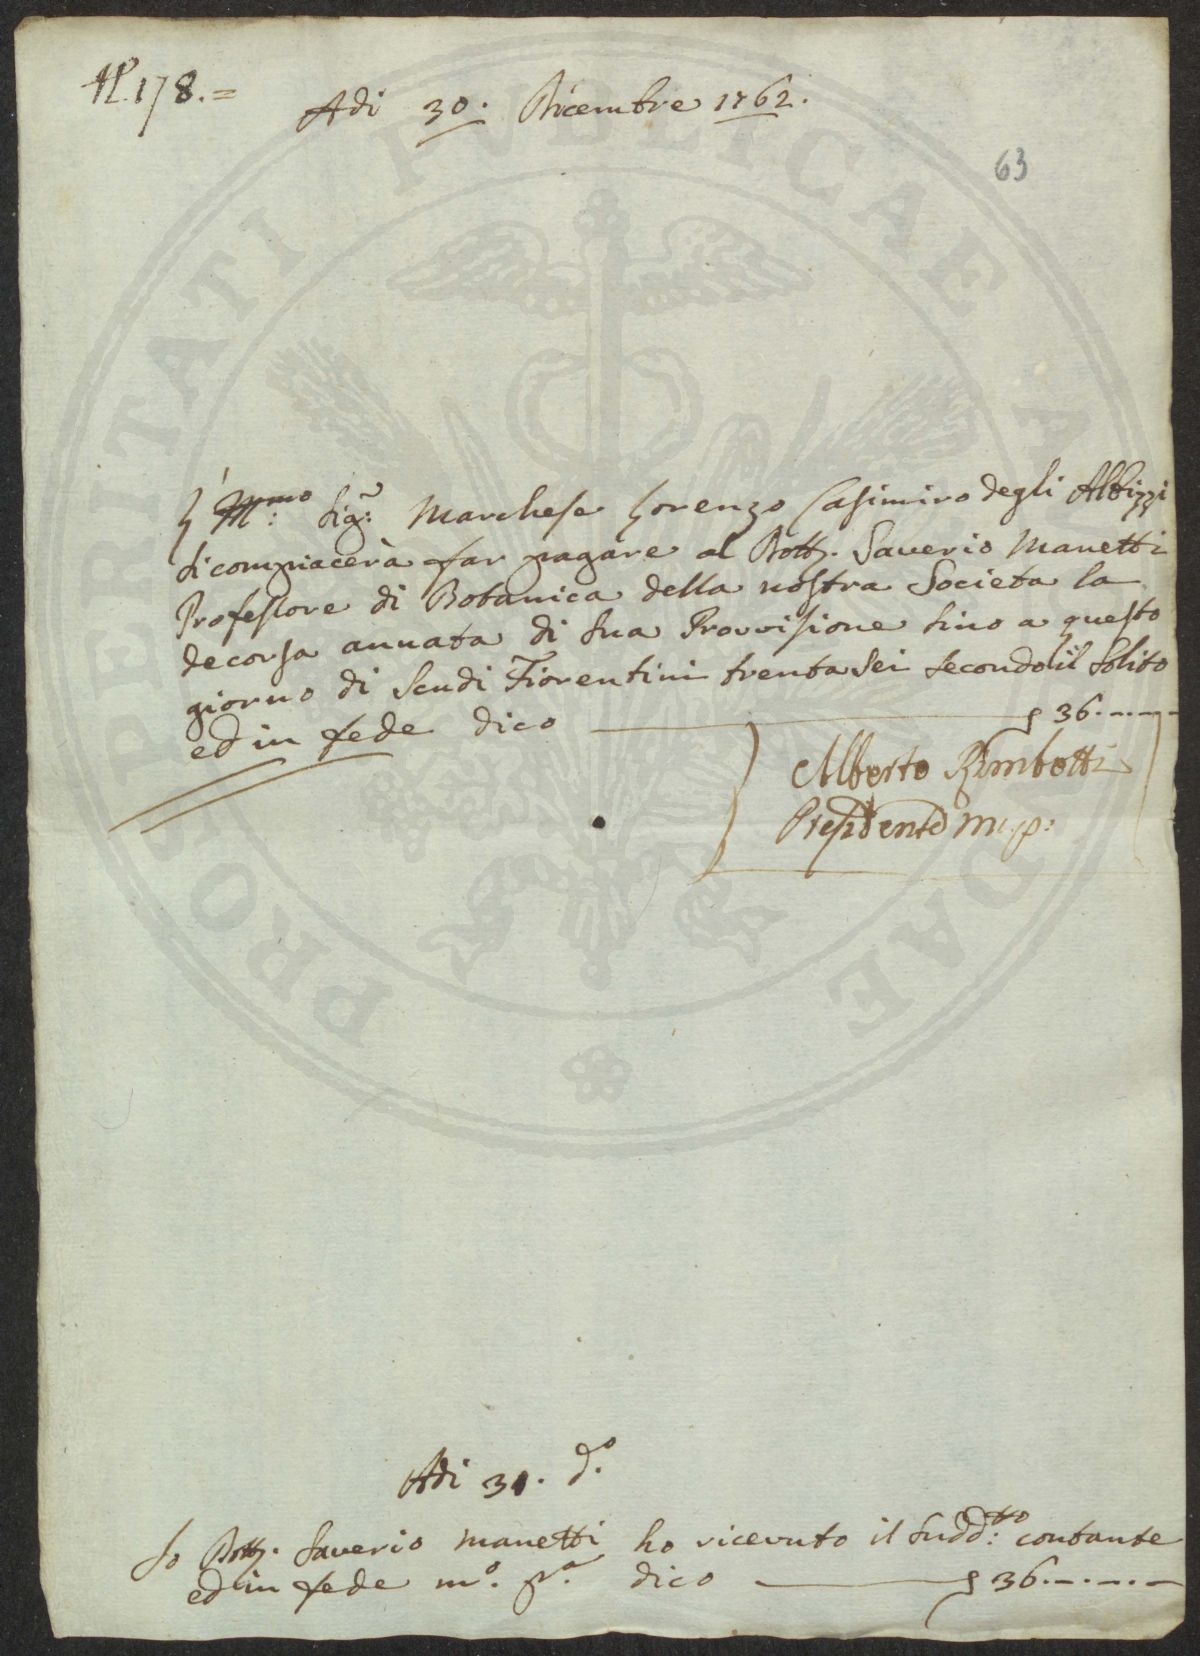 N.° 178.=
Adi 30. Dicembre 1762.
63
L'Ill.mo Sig.r Marchese Lorenzo Casimiro degli Albizzi
si compiacerà far pagare al Dott.r Saverio Manetti
Professore di Botanica della nostra Societa la
decorsa annata di sua Provvisione sino a questo
giorno di Scudi Fiorentini trentasei secondo il solito
ed in fede dico 36.-.-.-
Alberto Rimbotti
Presidente m. p.
PROSPERITATI PVBLICAE AVGENDAE
Adi 31. d.o
Io Dott.r Saverio Manetti ho ricevuto il sudd.tto contante
ed in fede m.o p.a dico 36.-.-.-